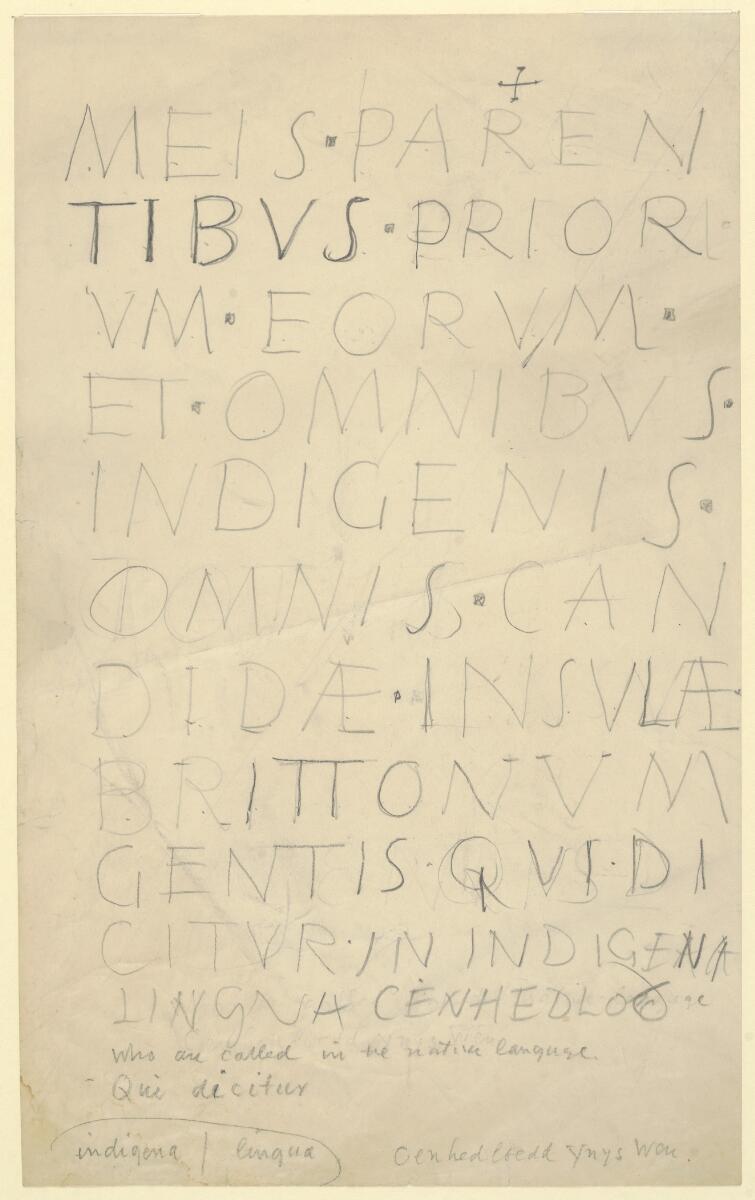 MEIS·PAREN
TIBVS·PRIOR
VM·EORVM·
ET·OMNIBVS·
INDIGENIS·
OMNIS·CAN
DIDÆ·INSVLÆ
BRITTONVM
GENTIS·QVI·DI
CITVR·IN INDIGENA
LINGNA CENHEDLO
who are called in the native language.
Qui dicitur
indigena / lingua
Cenhedloedd Ynys Wen.